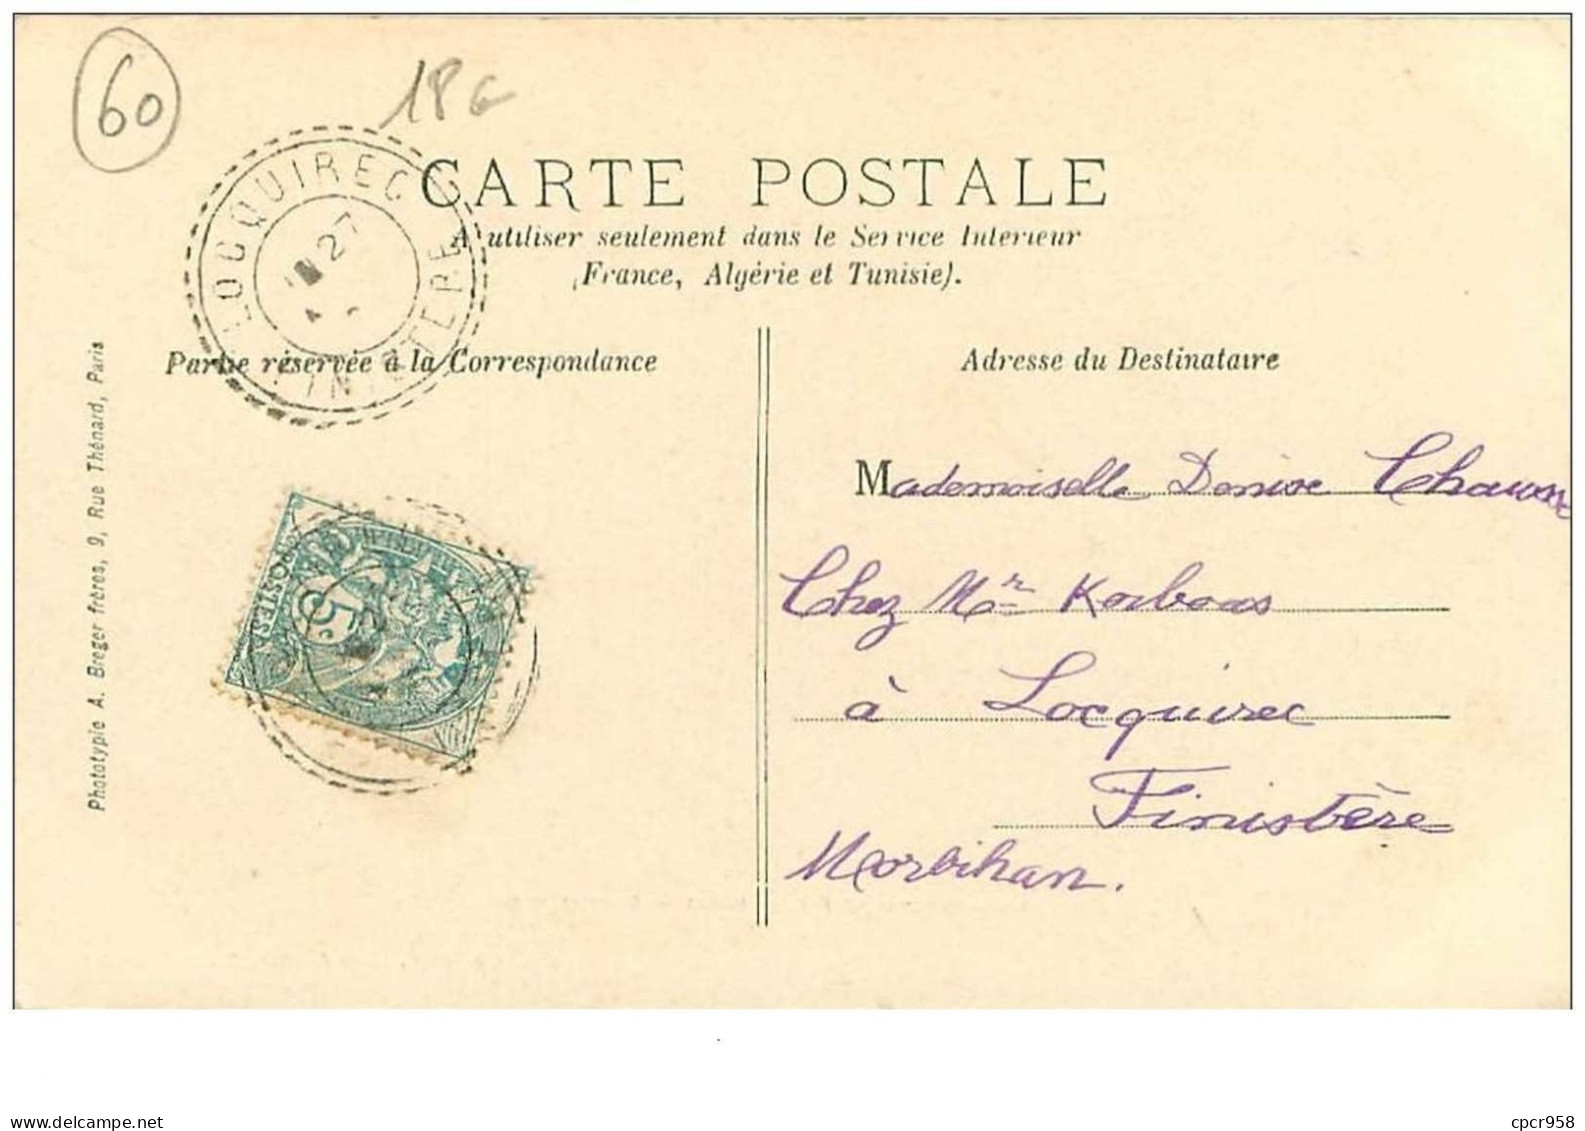 60
18€
CARTE POSTALE
A utiliser seulement dans le Service Interieur
(France, Algérie et Tunisie).
LOCQUIREC
27
FINISTERE
Partie réservée à la Correspondance
Adresse du Destinataire
Phototypie A. Breger frères, 9, Rue Thénard, Paris
POSTES
5c
Mademoiselle Denise
Chez Mr
à Locquirec
Finistère
Morbihan.
cpcr958